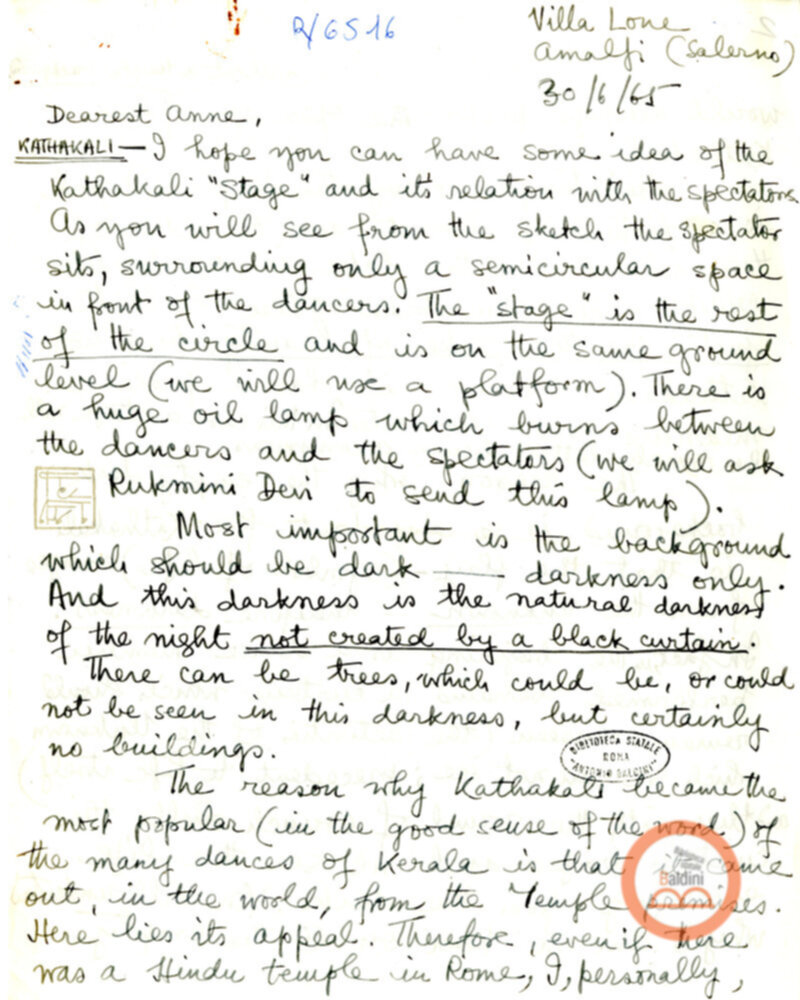 R/GS16
Villa Lone
Amalfi (Salerno)
30/6/65
Dearest Anne,
KATHAKALI — I hope you can have some idea of the
Kathakali "Stage" and its relation with the spectators.
As you will see from the sketch the spectator
sits, surrounding only a semicircular space
in front of the dancers. The "stage" is the rest
of the circle and is on the same ground
level (we will use a platform). There is
a huge oil lamp which burns between
the dancers and the spectators (we will ask
Rukmini Devi to send this lamp).
Most important is the background
which should be dark — darkness only.
And this darkness is the natural darkness
of the night not created by a black curtain.
There can be trees, which could be, or could
not be seen in this darkness, but certainly
no buildings.
BIBLIOTECA STATALE
ROMA
"ANTONIO BALDINI"
The reason why Kathakali became the
most popular (in the good sense of the word) of
the many dances of Kerala is that it came
Baldini
out, in the world, from the Temple premises.
Here lies its appeal. Therefore, even if there
was a Hindu temple in Rome, I, personally,